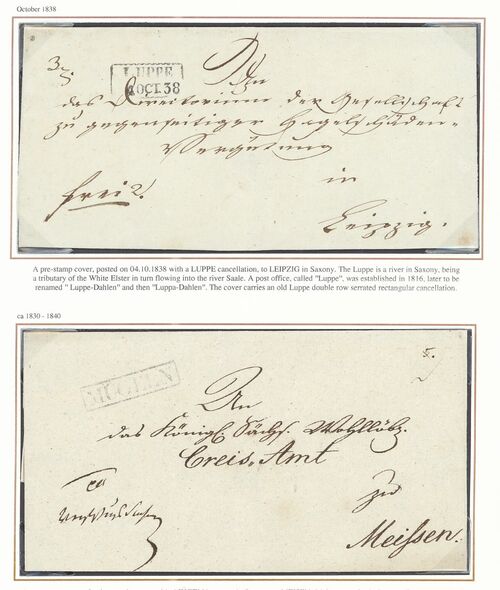 October 1838
3
LUPPE
4 OCT 38
An
das Directorium der Gesellschaft
zu gegenseitiger Hagelschäden-
Vergütung
in
frei
Leipzig.
A pre-stamp cover, posted on 04.10.1838 with a LUPPE cancellation, to LEIPZIG in Saxony. The Luppe is a river in Saxony, being
a tributary of the White Elster in turn flowing into the river Saale. A post office, called "Luppe", was established in 1816, later to be
renamed " Luppe-Dahlen" and then "Luppa-Dahlen". The cover carries an old Luppe double row serrated rectangular cancellation.
ca 1830 - 1840
5.
MÜGELN
An
das Königl. Sächs. Wohllöbl.
Creis-Amt
zu
Meissen.